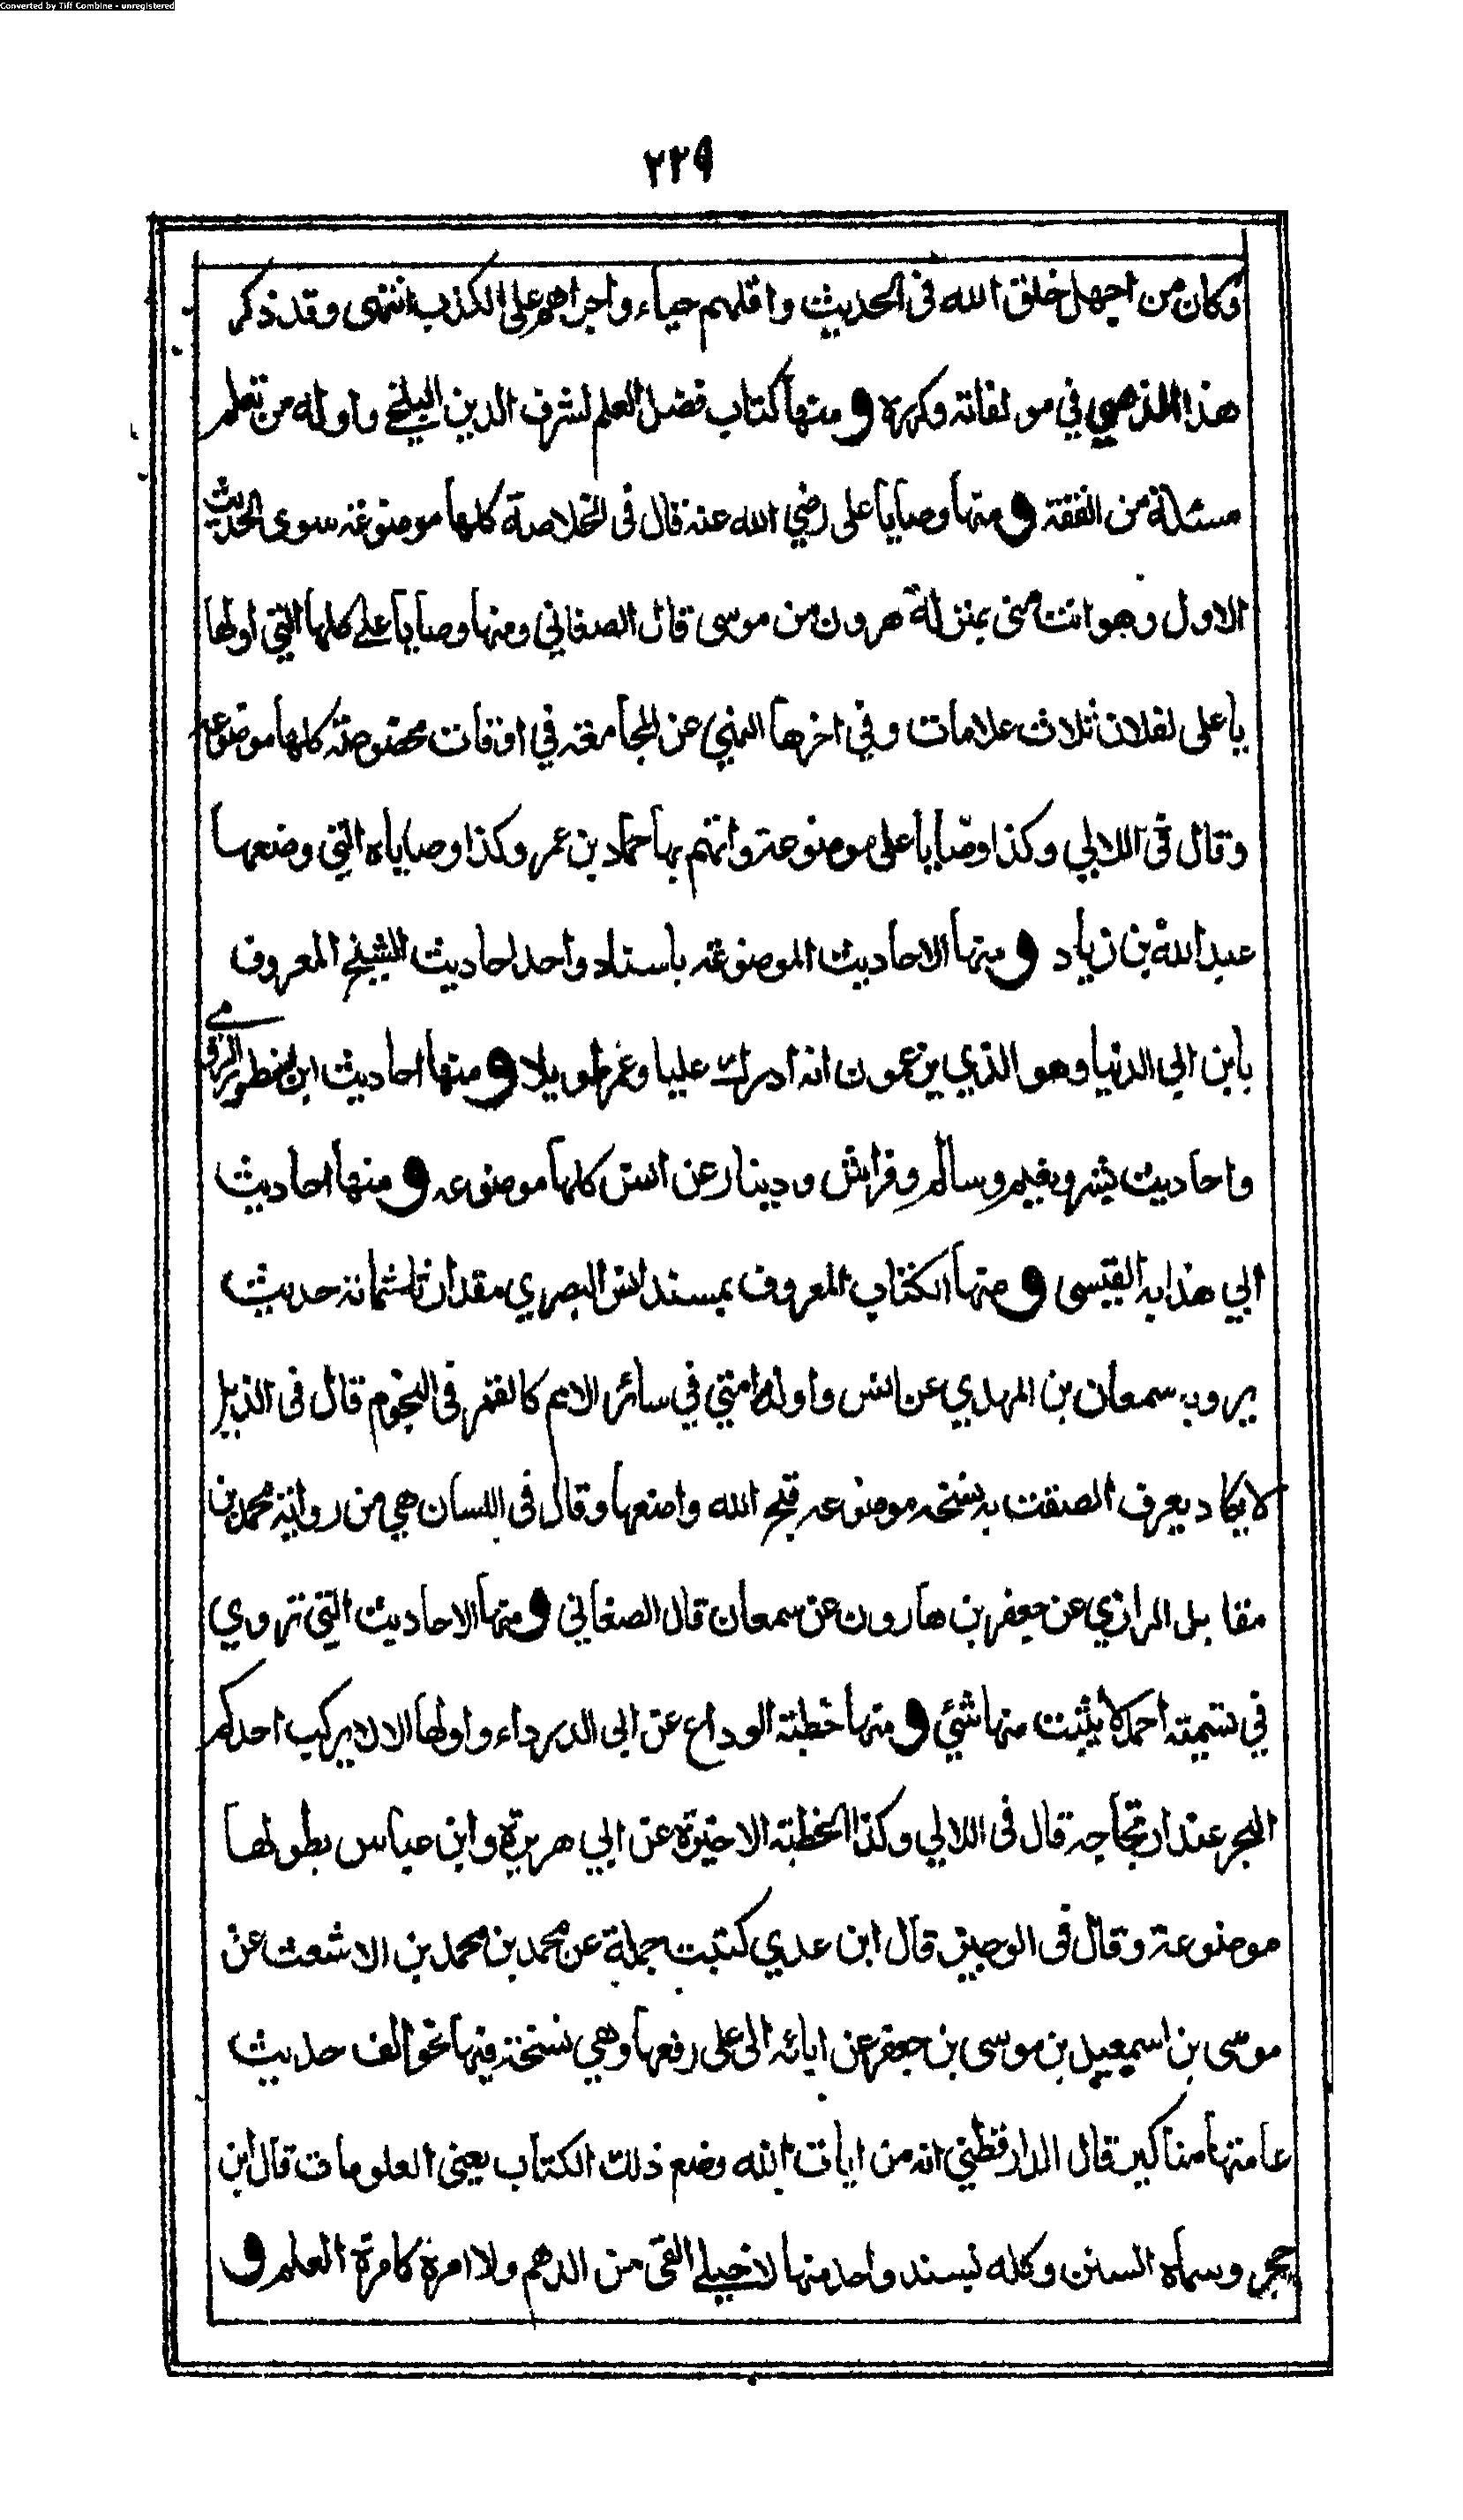 Converted by Tiff Combine - unregistered
٢٢٩
وكان من اجهل خلق الله فى الحديث واقلهم حياء واجراهم على الكذب انتهى وقد ذكر
هذا الذهبي في مولفاته وكرره و منها كتاب فضل العلم لشرف الدين البلخي واوله من تعلم
مسئلة من الفقه و منها وصايا على رضي الله عنه قال فى الخلاصة كلها موضوعه سوى الحديث
الاول وهو انت منى بمنزلة هرون من موسى قال الصغاني ومنها وصايا علي كلها التي اولها
يا على لفلان ثلاث علامات وفي اخرها النهي عن المجامعة في اوقات مخصوصة كلها موضوعه
وقال فى اللالي وكذا وصايا على موضوعة واتهم بها حماد بن عمر وكذا وصاياه التي وضعها
عبد الله بن زياد و منها الاحاديث الموضوعة باسناد واحد احاديث الشيخ المعروف
بابن ابي الدنيا وهو الذي يزعمون انه ادرك عليا وعمر طويلا و منها احاديث ابن نسطور الرومي
واحاديث بشر ونعيم وسالم وخراش ودينار عن انس كلها موضوعه و منها احاديث
ابي هذابه القيسى و منها الكتاب المعروف بمسند انس البصري مقدار ثلثمائة حديث
يرويه سمعان بن المهدي عن انس واوله امتي في سائر الامم كالقمر فى النجوم قال فى الذيل
لا يكاد يعرف الصقت به نسخه موضوعه قبح الله واضعها وقال فى اللسان هي من رواية محمد بن
مقابل الرازي عن جعفر بن هارون عن سمعان قال الصغاني و منها الاحاديث التي تروي
في تسمية احمد لا يثبت منها شئي و منها خطبة الوداع عن ابى الدرداء واولها الا لا يركب احدكم
البحر عند ارتجاجه قال فى اللالي وكذا الخطبة الاخيرة عن ابي هريرة وابن عباس بطولها
موضوعة وقال فى الوجيز قال ابن عدي كتبت جملة عن محمد بن محمد بن الاشعث عن
موسى بن اسمعيل بن موسى بن جعفر عن ابائه الى على رفعها وهي نسخة فيها نحو الف حديث
عامتها مناكير قال الدارقطني انه من ايات الله وضع ذلك الكتاب يعنى العلومات قال ابن
حجر وسماه السنن وكله بسند واحد منها لا خيل القى من الدهم ولا امرة كامرة العلم و